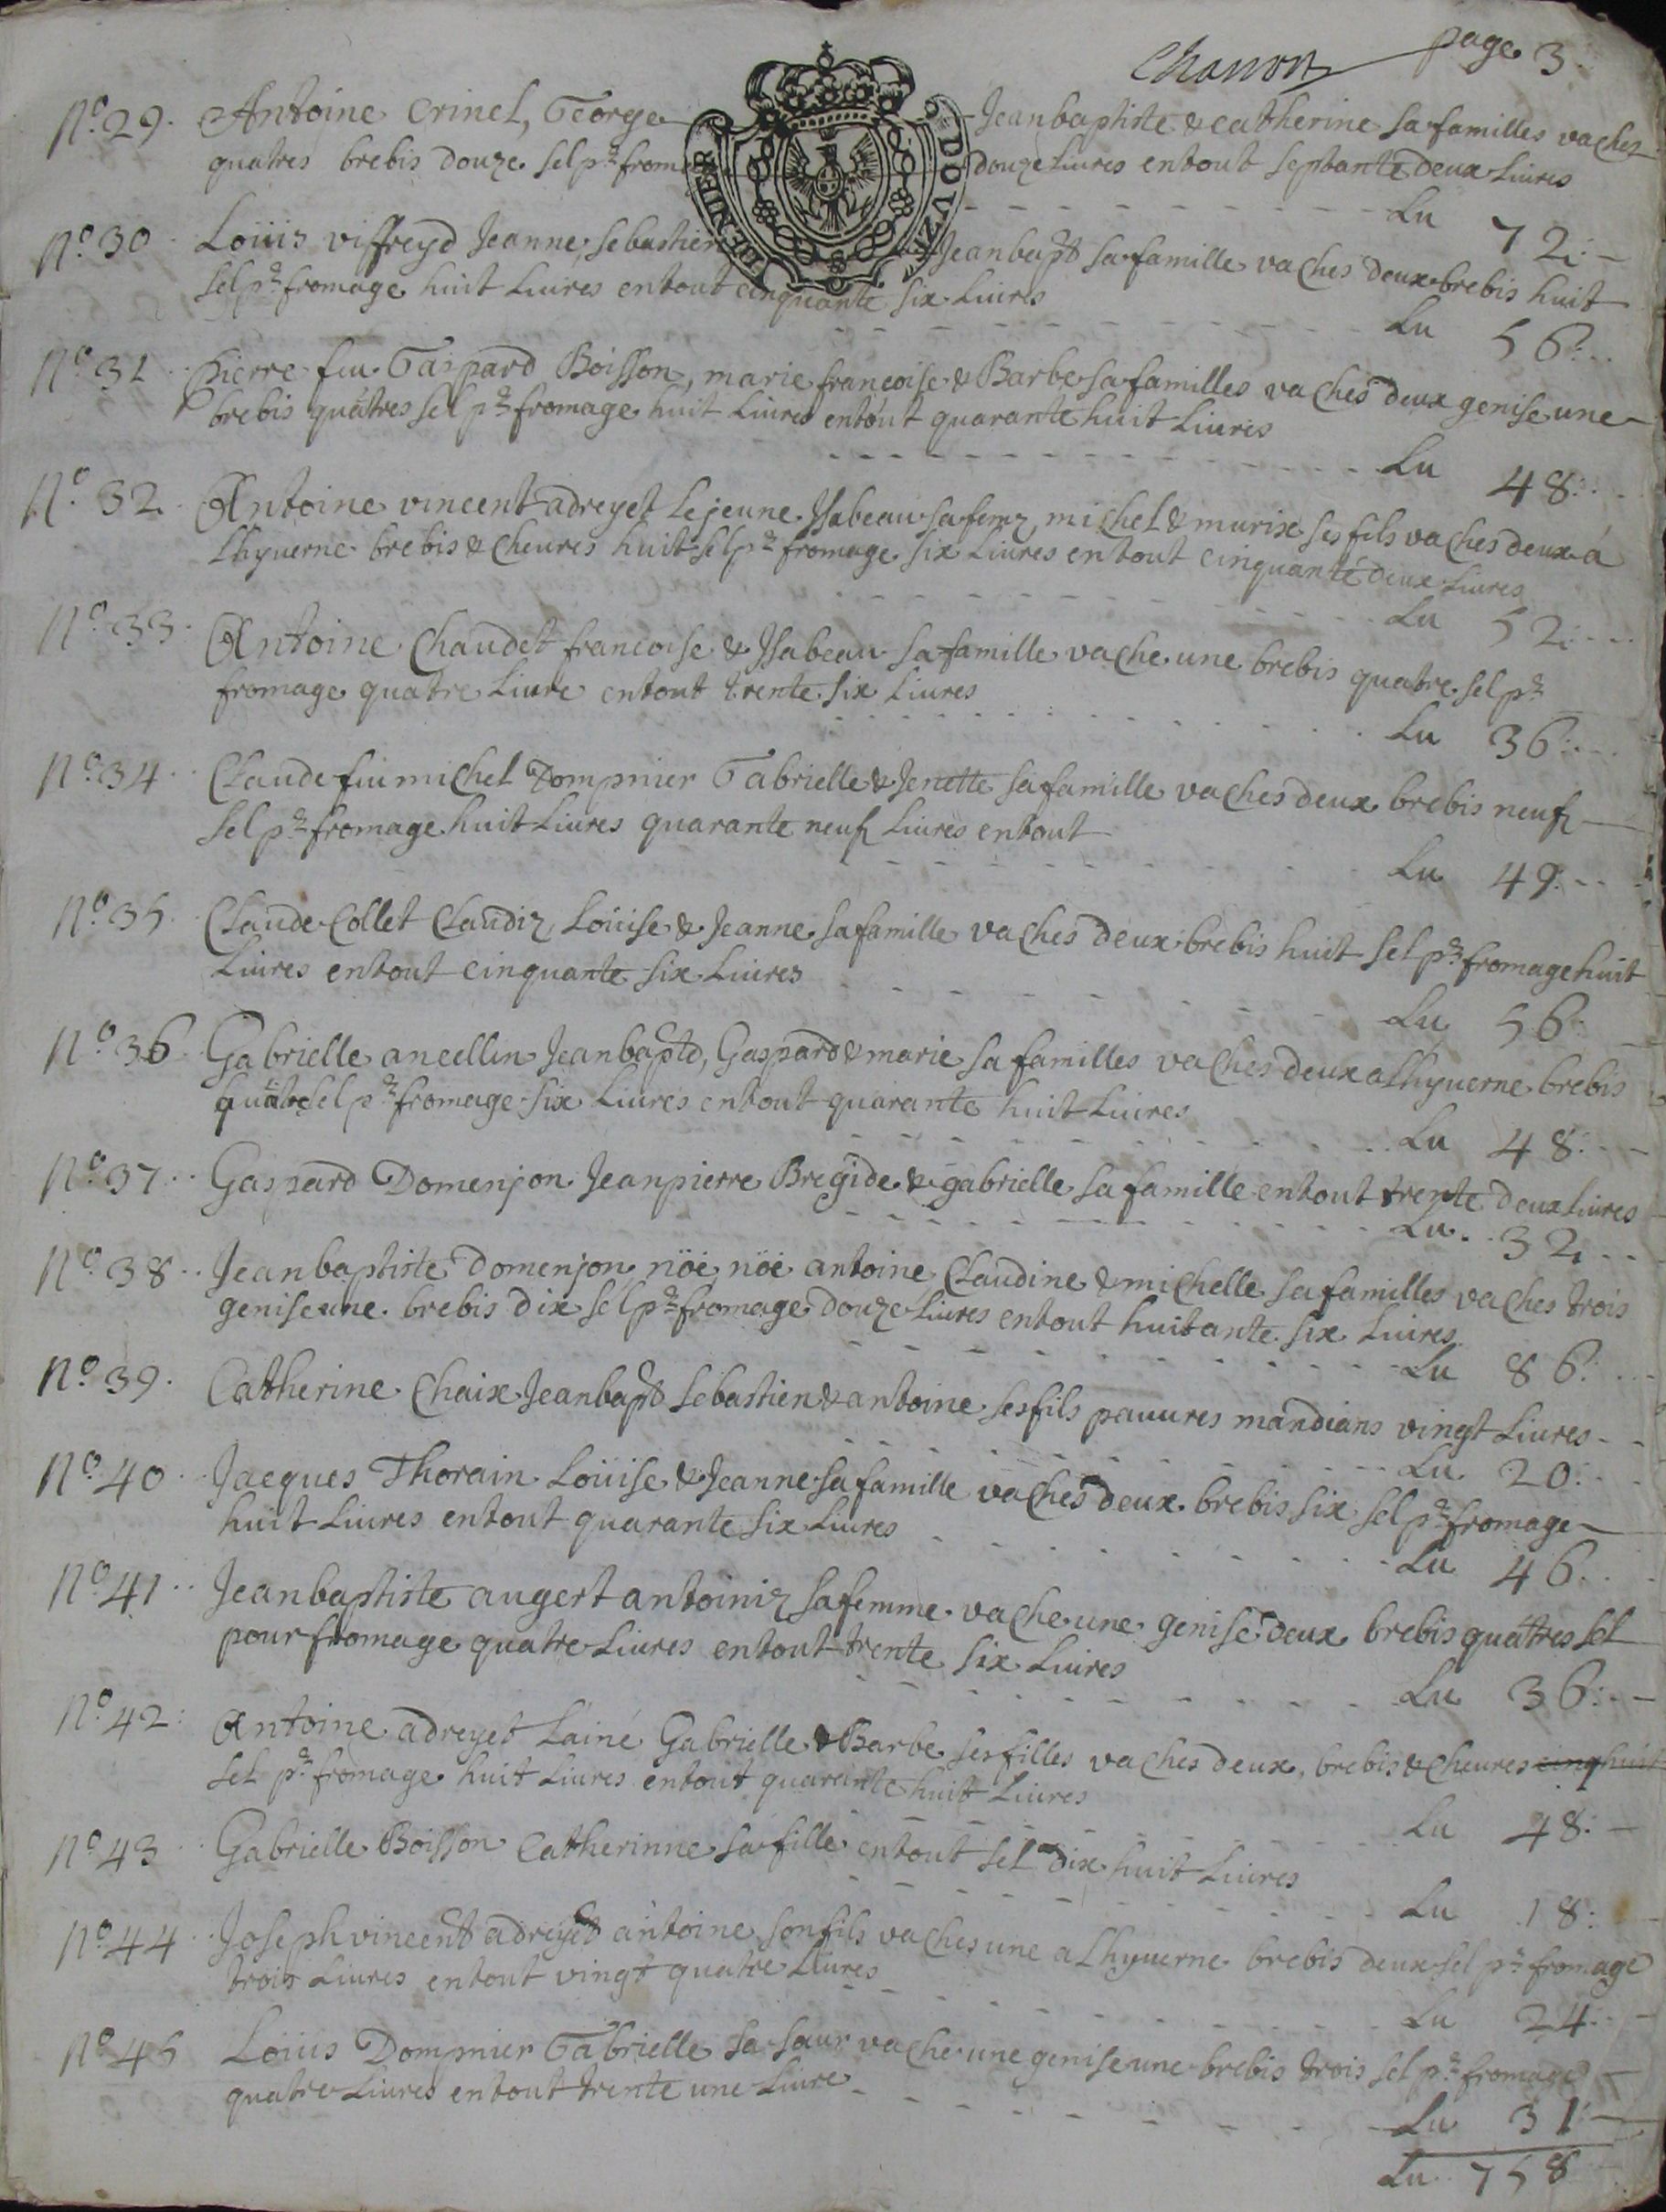 Chanvon page 3.
N.o 29. Antoine Crinel, George Jeanbaptiste & catherine sa familles vaches
quatres brebis douze sel pr from douze Liures entout septante deux Liures
Lu 72:
N.o 30 Loüis viffreyd Jeanne, sebastien Jeanbapt sa famille vaches deux brebis huit
sel pr fromage huit Liures entout cinquante six Liures
Lu 56:
N.o 31 Pierre feu Gaspard Boisson, marie françoise & Barbe sa familles vaches deux genise une
brebis quatres sel pr fromage huit Liures entout quarante huit Liures
Lu 48:
N.o 32 Antoine vincent adreyet Lejeune Jsabeau sa feme, michel & murise ses fils vaches deux a
Lhyuerne brebis & cheures huit sel pr fromage six Liures entout cinquante deux Liures
Lu 52:
N.o 33 Antoine Chaudet francoise & Jsabeau sa famille vache une brebis quatre sel pr
fromage quatre Liure entout trente six Liures
Lu 36:
N.o 34 Claude feu michel Dompnier Gabrielle & Jenette sa famille vaches deux brebis neuf
sel pr fromage huit Liures quarante neuf Liures entout
Lu 49:
N.o 35 Claude Collet Claudiz Loüise & Jeanne sa famille vaches deux brebis huit sel pr fromage huit
Liures entout cinquante six Liures
Lu 56:
N.o 36 Gabrielle ancellin Jeanbaptd, Gaspard & marie sa familles vaches deux a Lhyuerne brebis
quatre sel pr fromage six Liures entout quarante huit Liures
Lu 48:
N.o 37 Gaspard Domenjon Jeanpierre Bregide & gabrielle sa famille entout trente deux Liures
Lu 32
N.o 38 Jeanbaptiste Domenjon nöé nöé antoine Claudine & michelle sa familles vaches trois
genise une brebis dix sel pr fromage douze Liures entout huitante six Liures
Lu 86:
N.o 39. Catherine Chaix Jeanbapt sebastien & antoine ses fils pauures mandians vingt Liures
Lu 20:
N.o 40 Jacques Thorain Loüise & Jeanne sa famille vaches deux brebis six sel pr fromage
huit Liures entout quarante six Liures
Lu 46
N.o 41 Jeanbaptiste augert antoiniz sa femme vache une genise deux brebis quatres sel
pour fromage quatre Liures entout trente six Liures
Lu 36:
N.o 42: Antoine adreyet Lainé Gabrielle & Barbe ses filles vaches deux, brebis & cheures cinq huit
sel pr fromage huit Liures entout quarante huit Liures
Lu 48:
N.o 43 Gabrielle Boisson Catherinne sa fille entout sel dix huit Liures
Lu 18:
N.o 44 Joseph vincent adreyet antoine son fils vaches une a Lhyuerne brebis deux sel pr fromage
trois Liures entout vingt quatre Liures
Lu 24:
N.o 45 Loüis Dompnier Gabrielle sa sœur vache une genise une brebis trois sel pr fromage
quatre Liures entout trente une Liure
Lu 31:
Lu 758